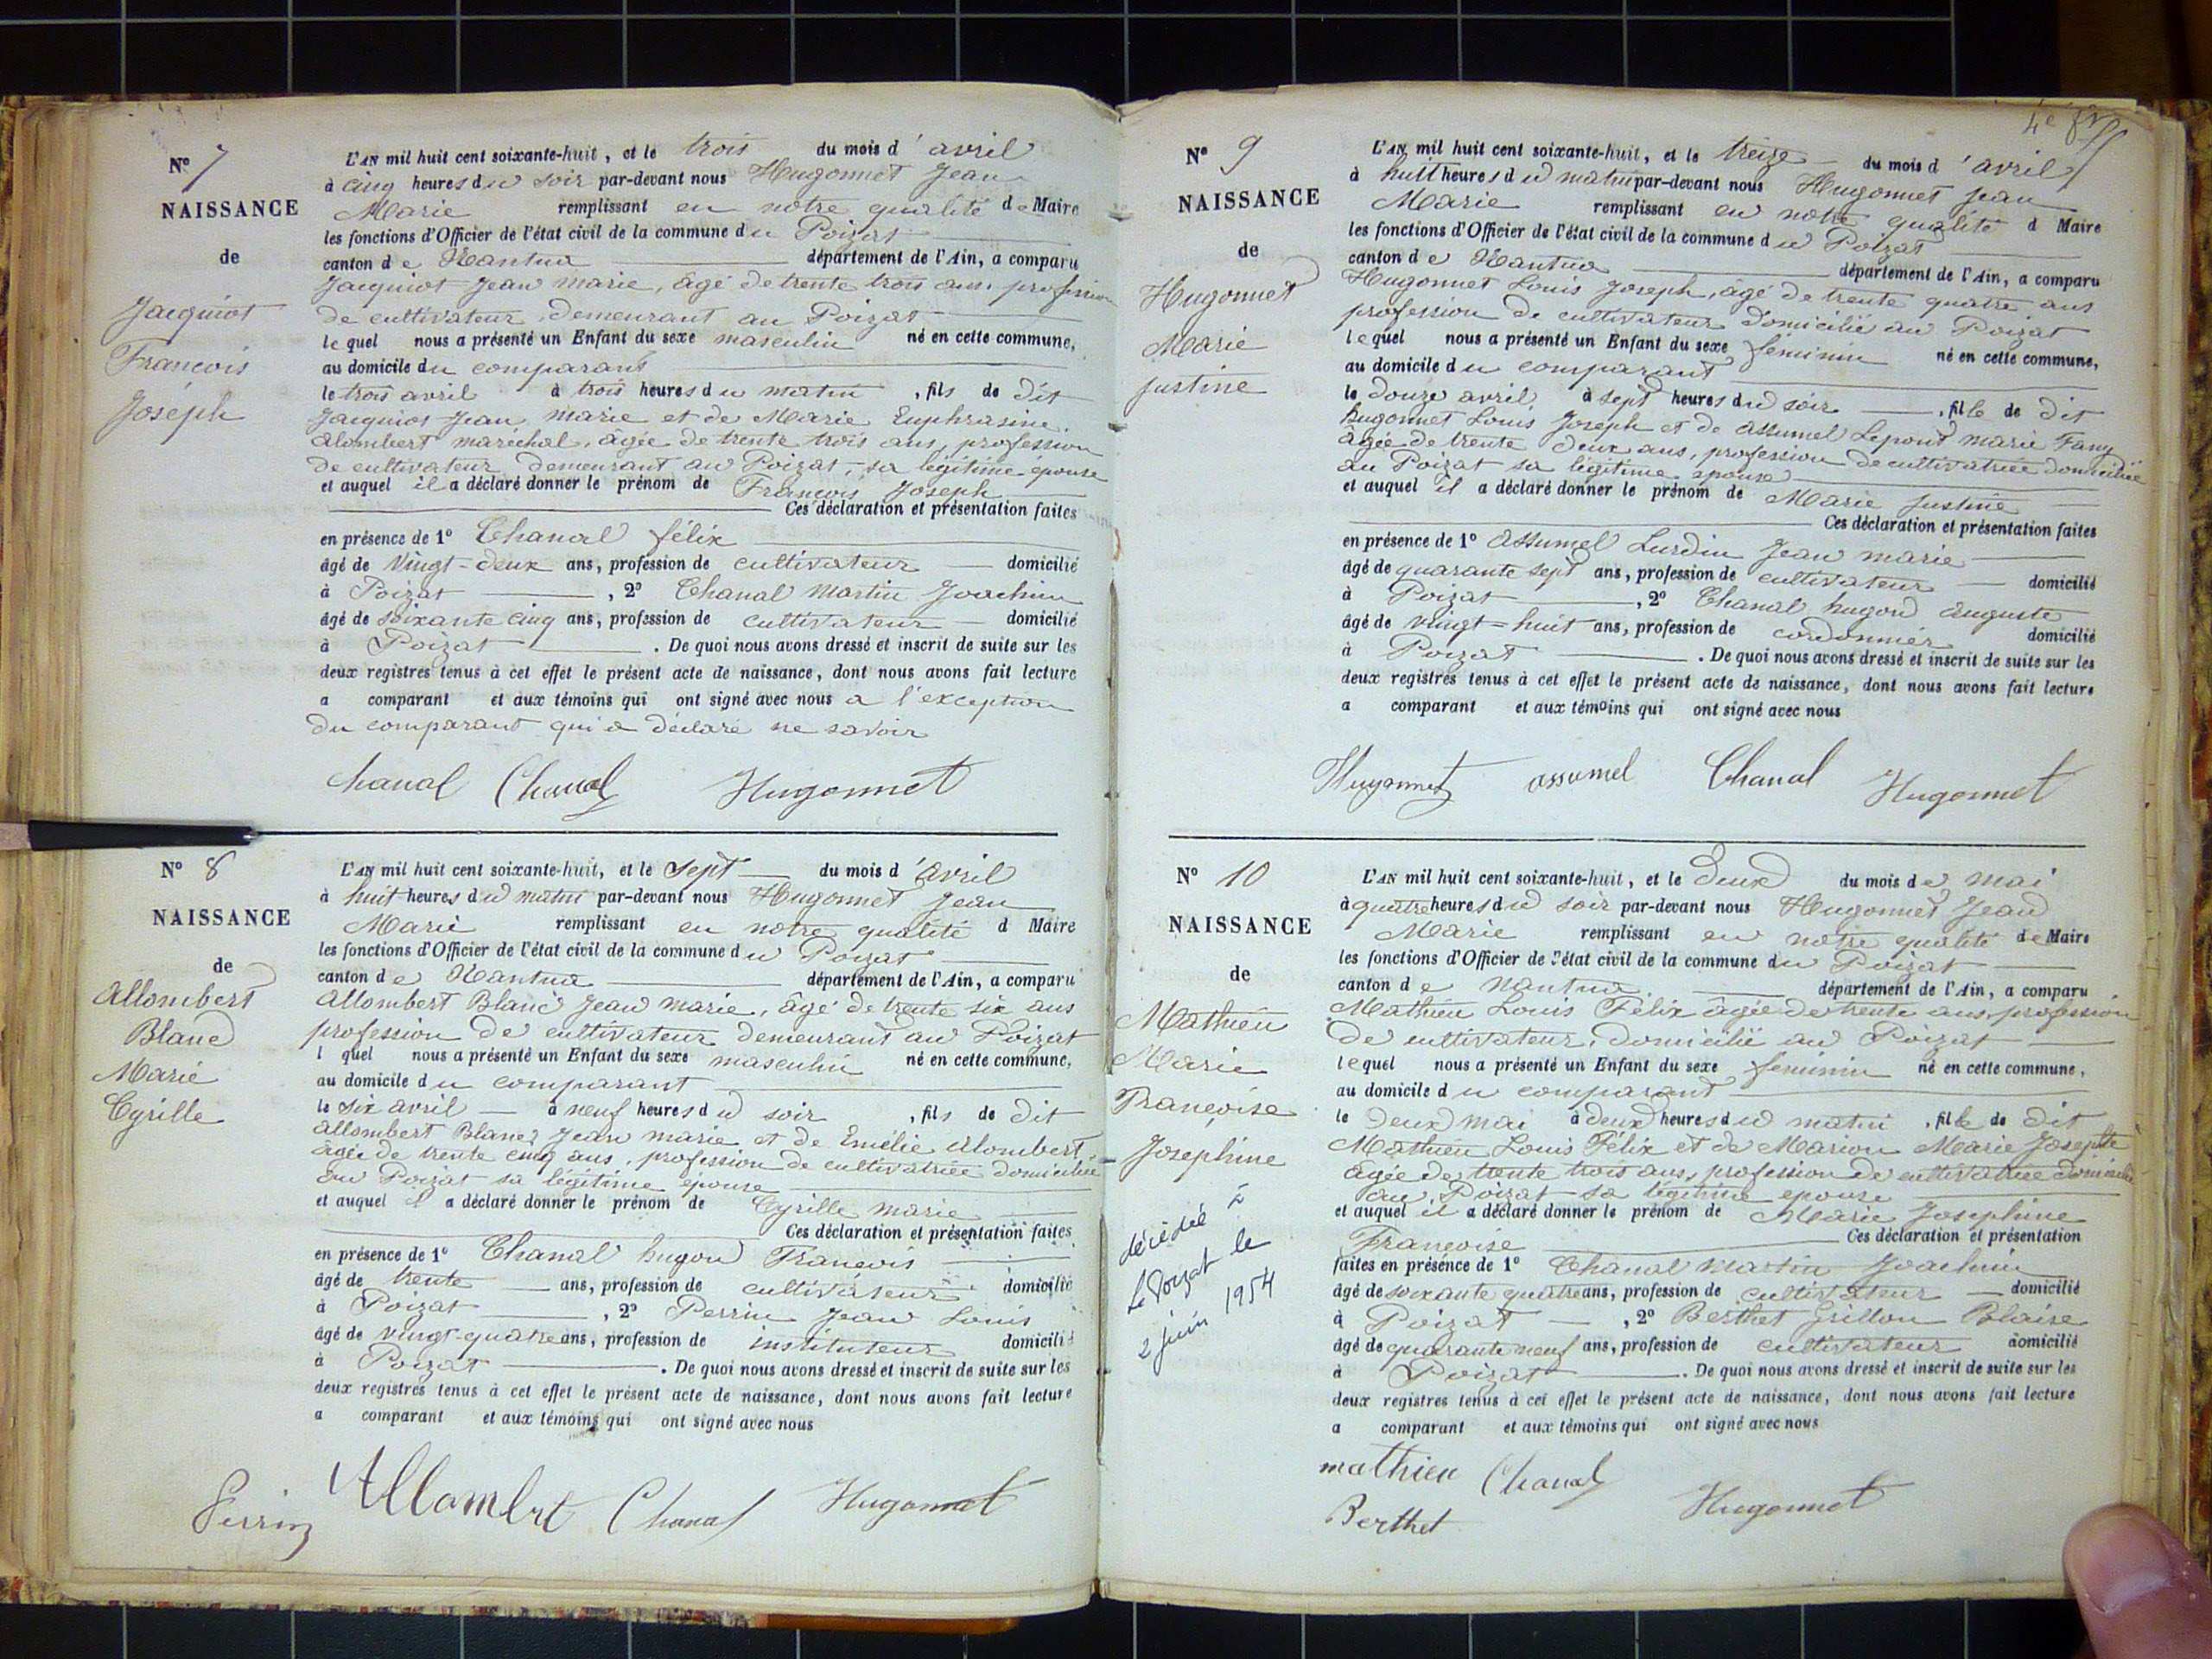 N° 7
NAISSANCE
de
Jacquiot
François
Joseph
L'AN mil huit cent soixante-huit, et le trois du mois d'avril
à cinq heures du soir par-devant nous Hugonnet Jean
Marie remplissant en notre qualité de Maire
les fonctions d'Officier de l'état civil de la commune du Poizat
canton de Nantua département de l'Ain, a comparu
Jacquiot Jean Marie, âgé de trente trois ans, profession
de cultivateur, demeurant au Poizat
lequel nous a présenté un Enfant du sexe masculin né en cette commune,
au domicile du comparant
le trois avril à trois heures du matin, fils de dit
Jacquiot Jean Marie et de Marie Euphrasine
alombert maréchal, âgée de trente trois ans, profession
de cultivateur demeurant au Poizat, sa légitime epouse
et auquel il a déclaré donner le prénom de François Joseph
Ces déclaration et présentation faites
en présence de 1° Chanal félix
âgé de Vingt-deux ans, profession de cultivateur domicilié
à Poizat, 2° Chanal Martin Joachim
âgé de soixante cinq ans, profession de cultivateur domicilié
à Poizat. De quoi nous avons dressé et inscrit de suite sur les
deux registres tenus à cet effet le présent acte de naissance, dont nous avons fait lecture
a comparant et aux témoins qui ont signé avec nous a l'exception
du comparant qui a déclaré ne savoir
Chanal Chanal Hugonnet
N° 8
NAISSANCE
de
Allombert
Blanc
Marie
Cyrille
L'AN mil huit cent soixante-huit, et le sept du mois d'avril
à huit heures du matin par-devant nous Hugonnet Jean
Marie remplissant en notre qualité d Maire
les fonctions d'Officier de l'état civil de la commune du Poizat
canton de Nantua département de l'Ain, a comparu
Allombert Blanc Jean Marie, âgé de trente six ans
profession de cultivateur demeurant au Poizat
l quel nous a présenté un Enfant du sexe masculin né en cette commune,
au domicile du comparant
le six avril à neuf heures du soir, fils de dit
allombert Blanc Jean Marie et de Emélie Alombert
âgée de trente cinq ans, profession de cultivatrice domiciliée
au Poizat sa légitime epouse
et auquel il a déclaré donner le prénom de Cyrille Marie
Ces déclaration et présentation faites
en présence de 1° Chanal hugon François
âgé de trente ans, profession de cultivateur domicilié
à Poizat, 2° Perrin Jean Louis
âgé de vingt-quatre ans, profession de instituteur domicilié
à Poizat. De quoi nous avons dressé et inscrit de suite sur les
deux registres tenus à cet effet le présent acte de naissance, dont nous avons fait lecture
a comparant et aux témoins qui ont signé avec nous
Perrin Allombert Chanal Hugonnet
N° 9
NAISSANCE
de
Hugonnet
Marie
Justine
L'AN mil huit cent soixante-huit, et le treize du mois d'avril
à huit heures du matin par-devant nous Hugonnet Jean
Marie remplissant en notre qualité d Maire
les fonctions d'Officier de l'état civil de la commune du Poizat
canton de Nantua département de l'Ain, a comparu
Hugonnet Louis Joseph, âgé de trente quatre ans
profession de cultivateur domicilié au Poizat
lequel nous a présenté un Enfant du sexe féminin né en cette commune,
au domicile du comparant
le douze avril à sept heures du soir, fille de dit
hugonnet Louis Joseph et de Assumel Lepont Marie Fany
âgée de trente deux ans, profession de cultivatrice domiciliée
au Poizat sa légitime epouse
et auquel il a déclaré donner le prénom de Marie Justine
Ces déclaration et présentation faites
en présence de 1° Assumel Lurdin Jean Marie
âgé de quarante sept ans, profession de cultivateur domicilié
à Poizat, 2° Chanal hugon Auguste
âgé de vingt=huit ans, profession de cordonnier domicilié
à Poizat. De quoi nous avons dressé et inscrit de suite sur les
deux registres tenus à cet effet le présent acte de naissance, dont nous avons fait lecture
a comparant et aux témoins qui ont signé avec nous
Hugonnet assumel Chanal Hugonnet
N° 10
NAISSANCE
de
Mathieu
Marie
Françoise
Josephine
décédée à
Le Poizat le
2 juin 1954
L'AN mil huit cent soixante-huit, et le deux du mois de mai
à quatre heures du soir par-devant nous Hugonnet Jean
Marie remplissant en notre qualité de Maire
les fonctions d'Officier de l'état civil de la commune du Poizat
canton de Nantua département de l'Ain, a comparu
Mathieu Louis Félix âgée de trente ans, profession
de cultivateur, domicilié au Poizat
lequel nous a présenté un Enfant du sexe féminin né en cette commune,
au domicile du comparant
le deux mai à deux heures du matin, fille de dit
Mathieu Louis Félix et de Marion Marie Josephte
âgée de trente trois ans, profession de cultivatrice domiciliée
au Poizat sa légitime epouse
et auquel il a déclaré donner le prénom de Marie Josephine
Françoise Ces déclaration et présentation
faites en présence de 1° Chanal Martin Joachim
âgé de soixante quatre ans, profession de cultivateur domicilié
à Poizat, 2° Berthet Grillon Blaise
âgé de quarante neuf ans, profession de cultivateur domicilié
à Poizat. De quoi nous avons dressé et inscrit de suite sur les
deux registres tenus à cet effet le présent acte de naissance, dont nous avons fait lecture
a comparant et aux témoins qui ont signé avec nous
mathieu Chanal
Berthet Hugonnet